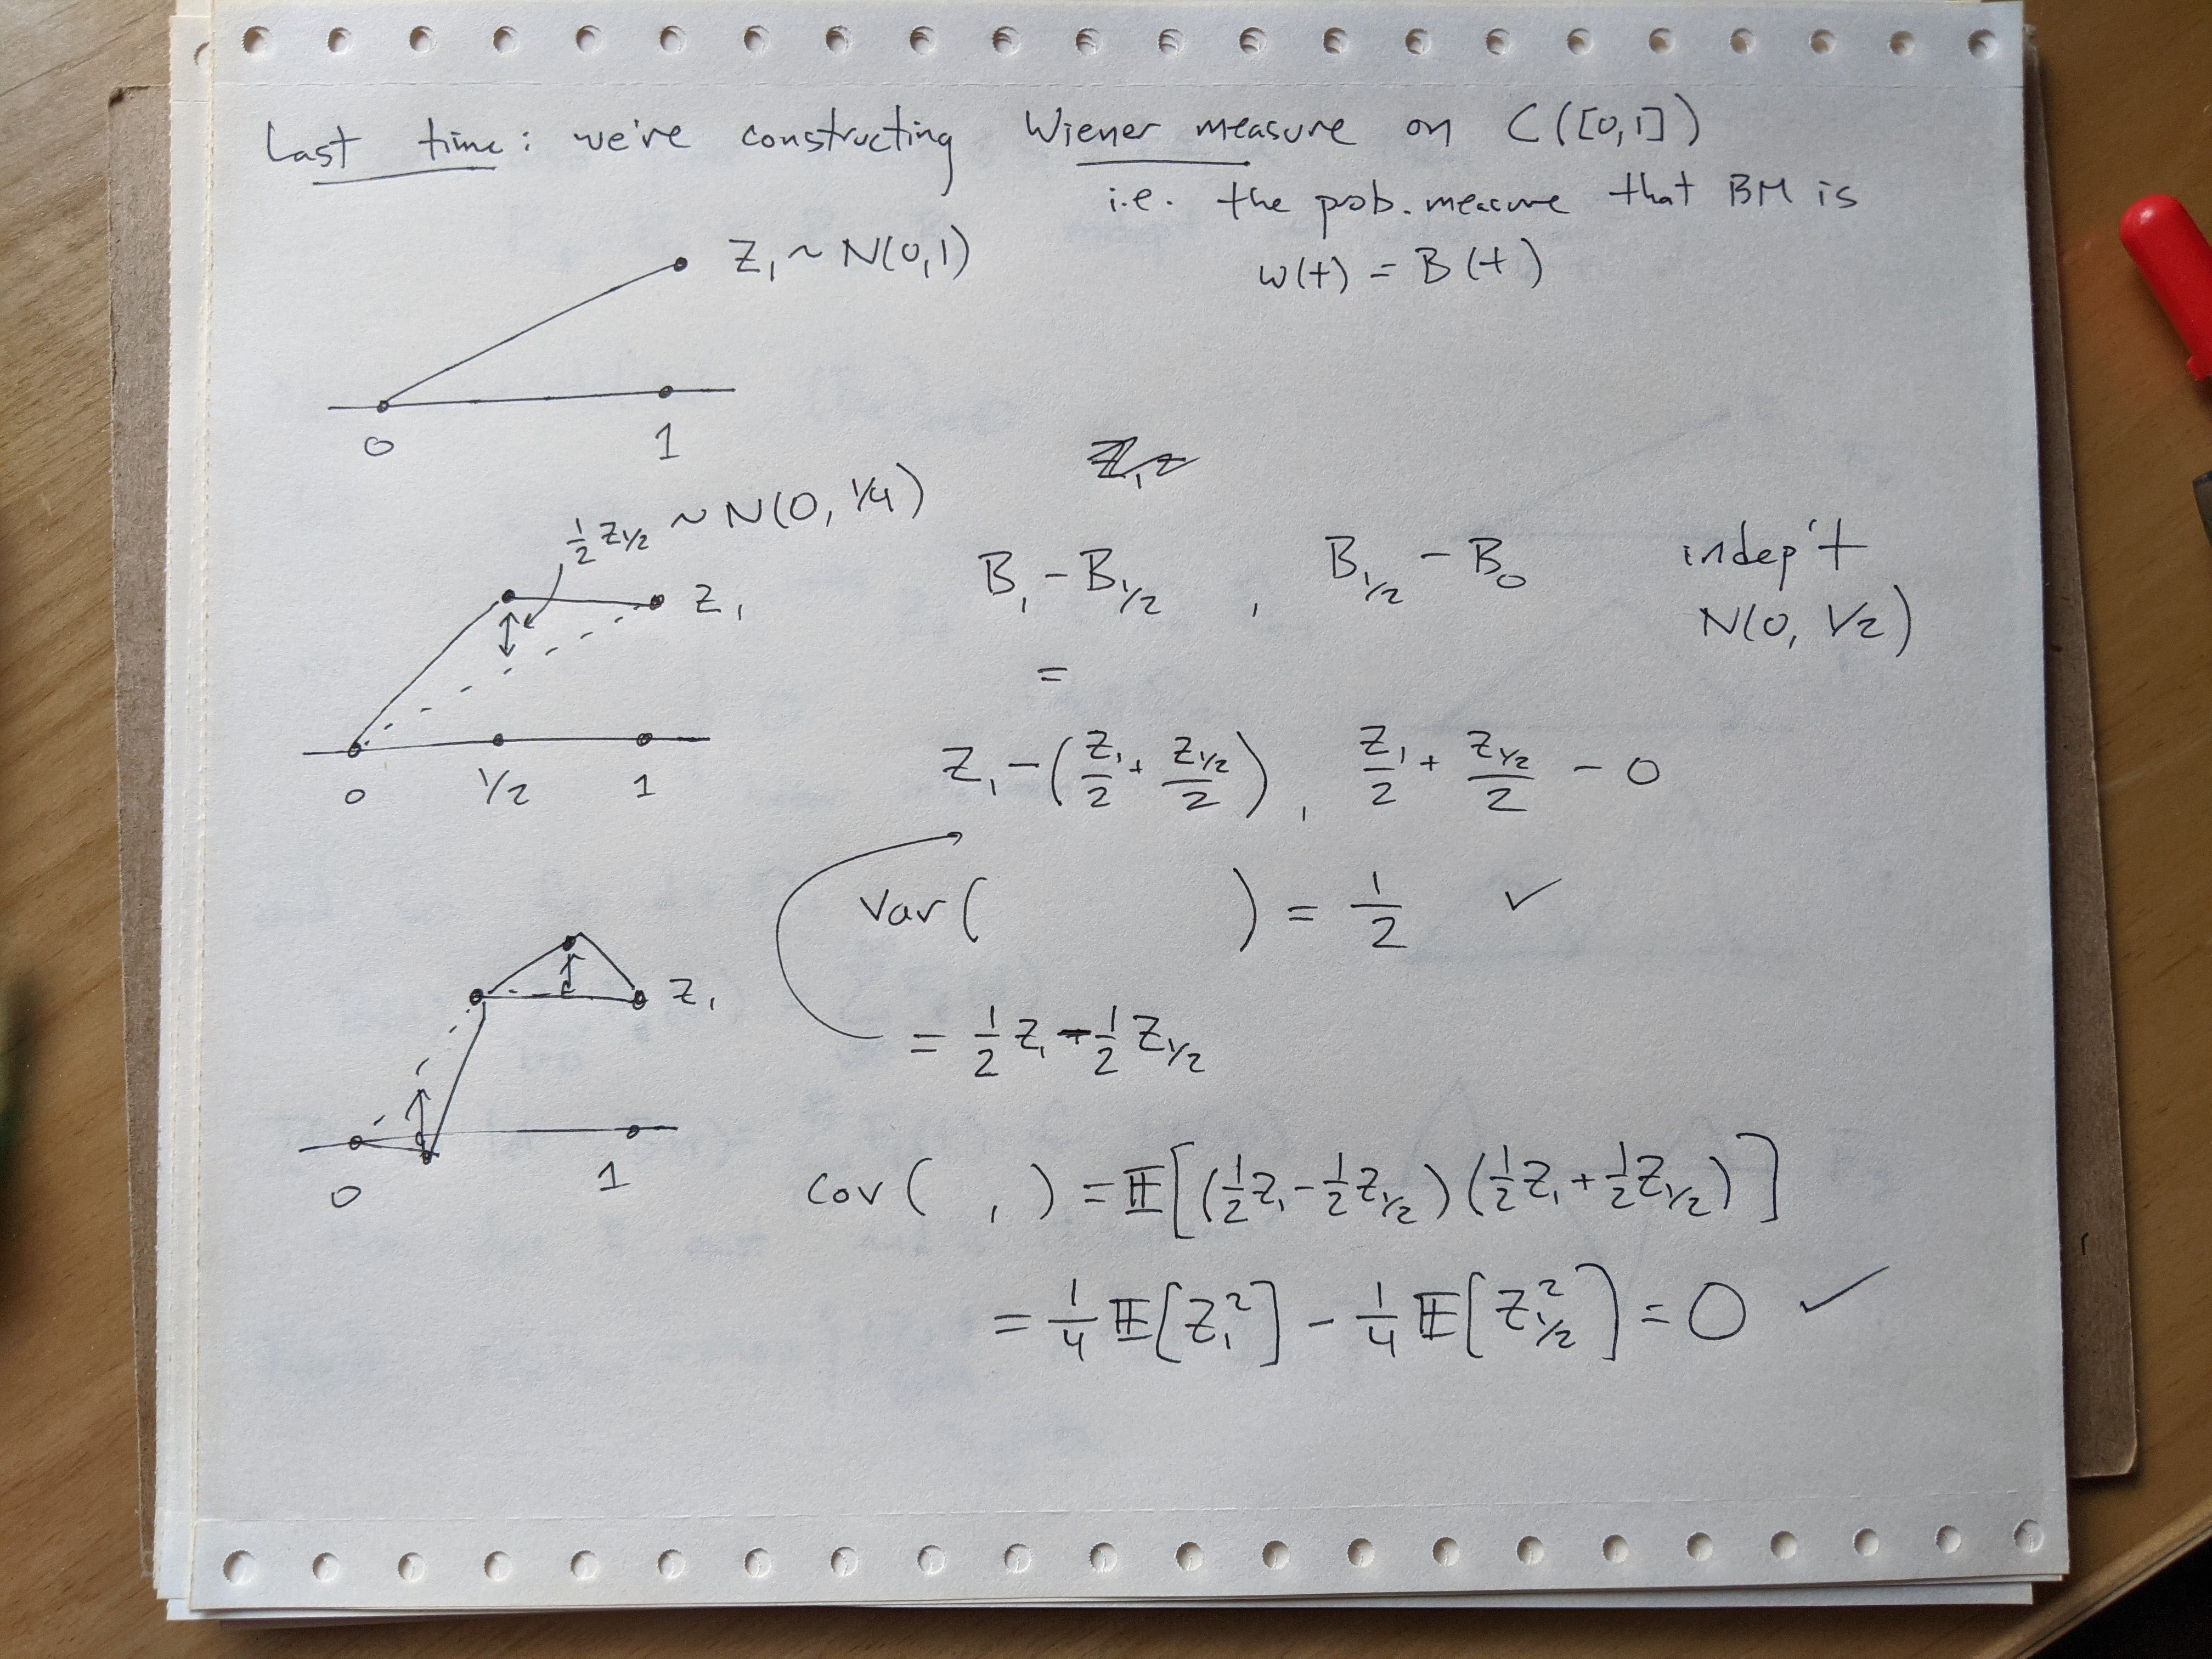 Last time: we're constructing Wiener measure on C([0,1])
i.e. the prob. measure that BM is
w(t) = B(t)
Z₁ ~ N(0,1)
0 1
½ Z_{1/2} ~ N(0, 1/4)
Z₁
0 1/2 1
B₁ - B_{1/2} , B_{1/2} - B₀ indep't
N(0, 1/2)
=
Z₁ - (Z₁/2 + Z_{1/2}/2) , Z₁/2 + Z_{1/2}/2 - 0
Var( ) = 1/2 ✓
= ½ Z₁ - ½ Z_{1/2}
Z₁
0 1
Cov( , ) = 𝔼[(½Z₁ - ½Z_{1/2})(½Z₁ + ½Z_{1/2})]
= ¼ 𝔼[Z₁²] - ¼ 𝔼[Z_{1/2}²] = 0 ✓